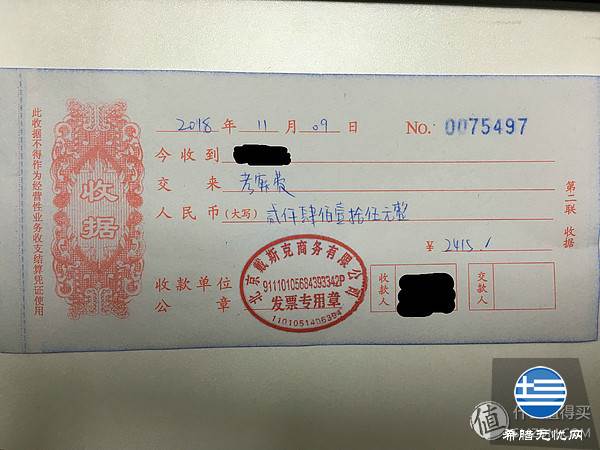 2018 年 11 月 09 日 No. 0075497
今收到
交来 考麻费
人民币(大写) 贰仟肆佰壹拾伍元整
¥ 2415./
收款单位
公章
收款人
交款人
北京戴斯克商务有限公司
91110105684393342P
发票专用章
1101051406394
收据
此收据不得作为经营性业务收支结算凭证使用
第二联 收据
值 什么值得买
希腊无忧网